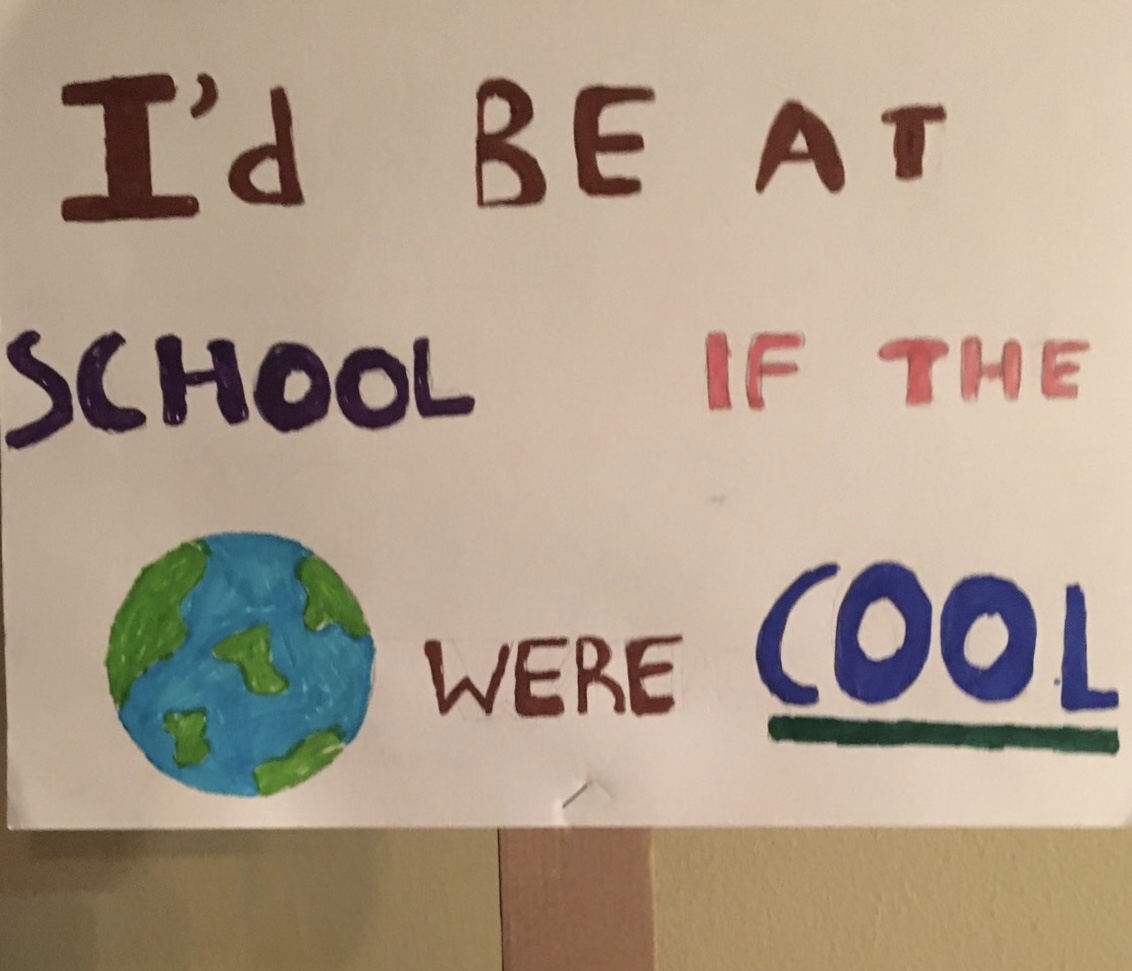 I'd BE AT
SCHOOL IF THE
WERE COOL